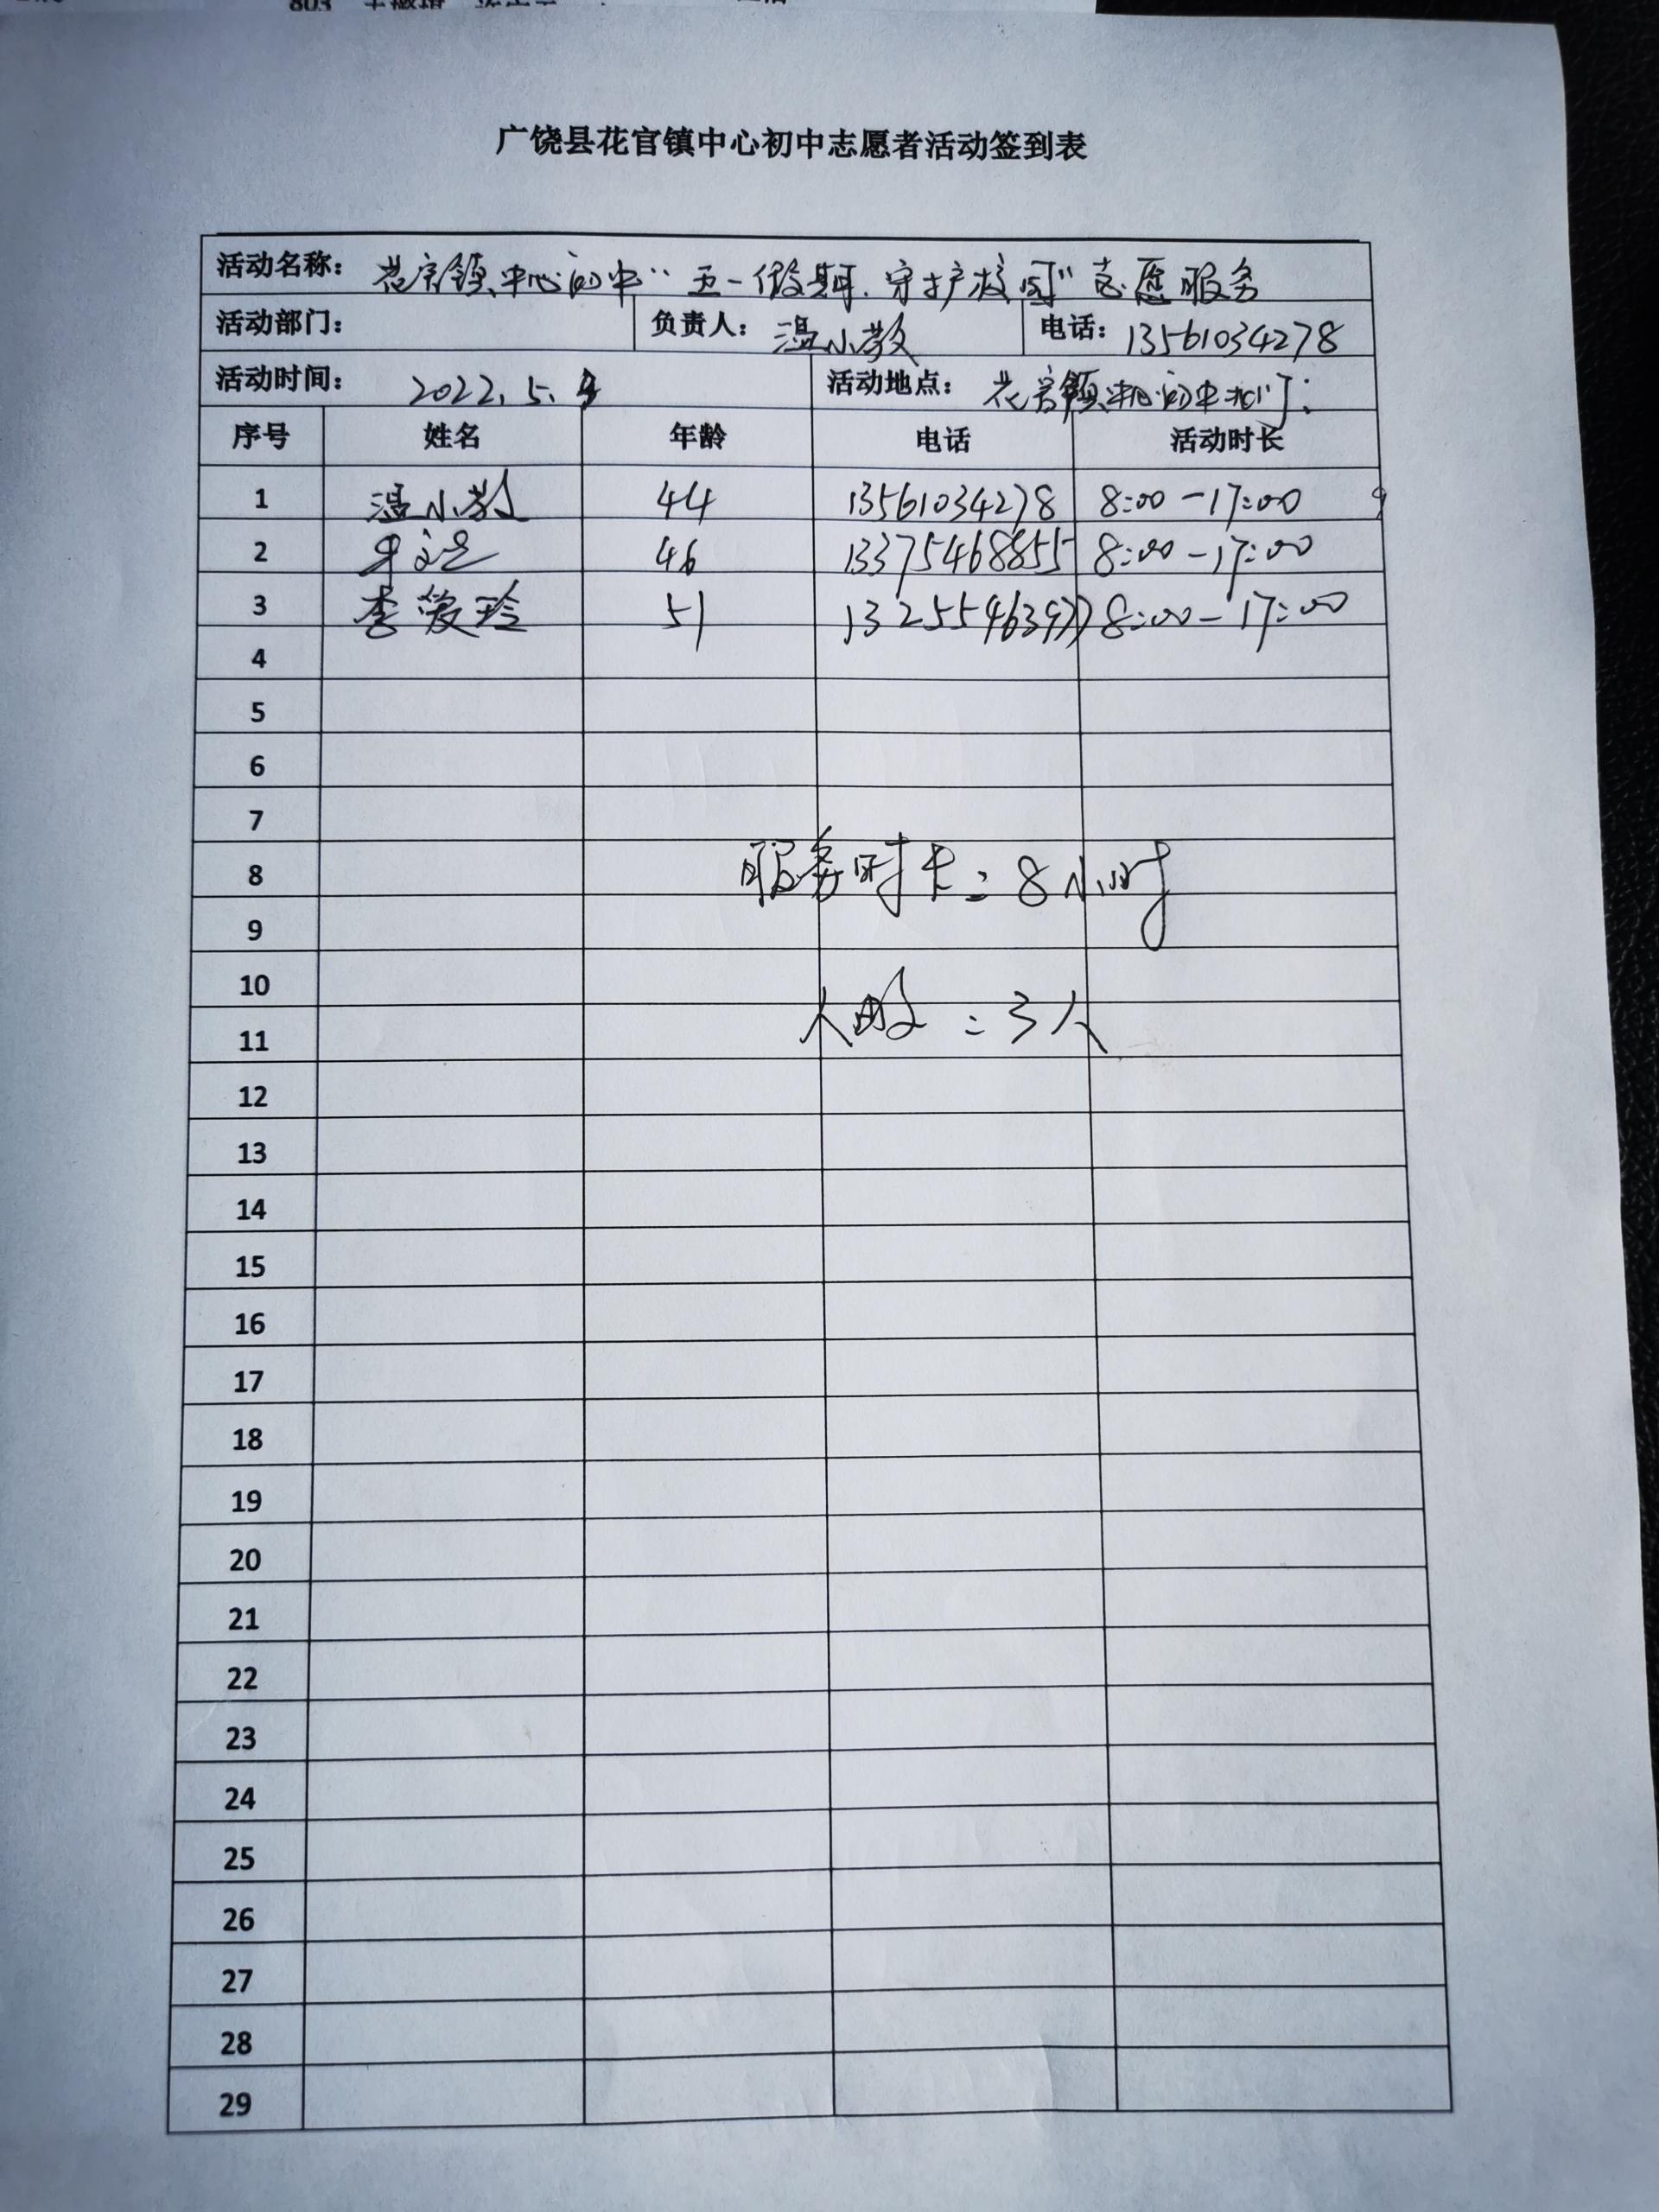 广饶县花官镇中心初中志愿者活动签到表
活动名称： 花官镇中心初中“五一假期.守护校园”志愿服务
活动部门： 负责人： 温小教 电话：13561034278
活动时间： 2022.5. 活动地点： 花官镇中心初中
序号 姓名 年龄 电话 活动时长
1 温小教 44 13561034278 8:00-17:00
2 46 13375468855 8:00-17:00
3 李爱玲 51 13255463977 8:00-17:00
4
5
6
7
8 服务时长：8小时
9
10
11 人数：3人
12
13
14
15
16
17
18
19
20
21
22
23
24
25
26
27
28
29